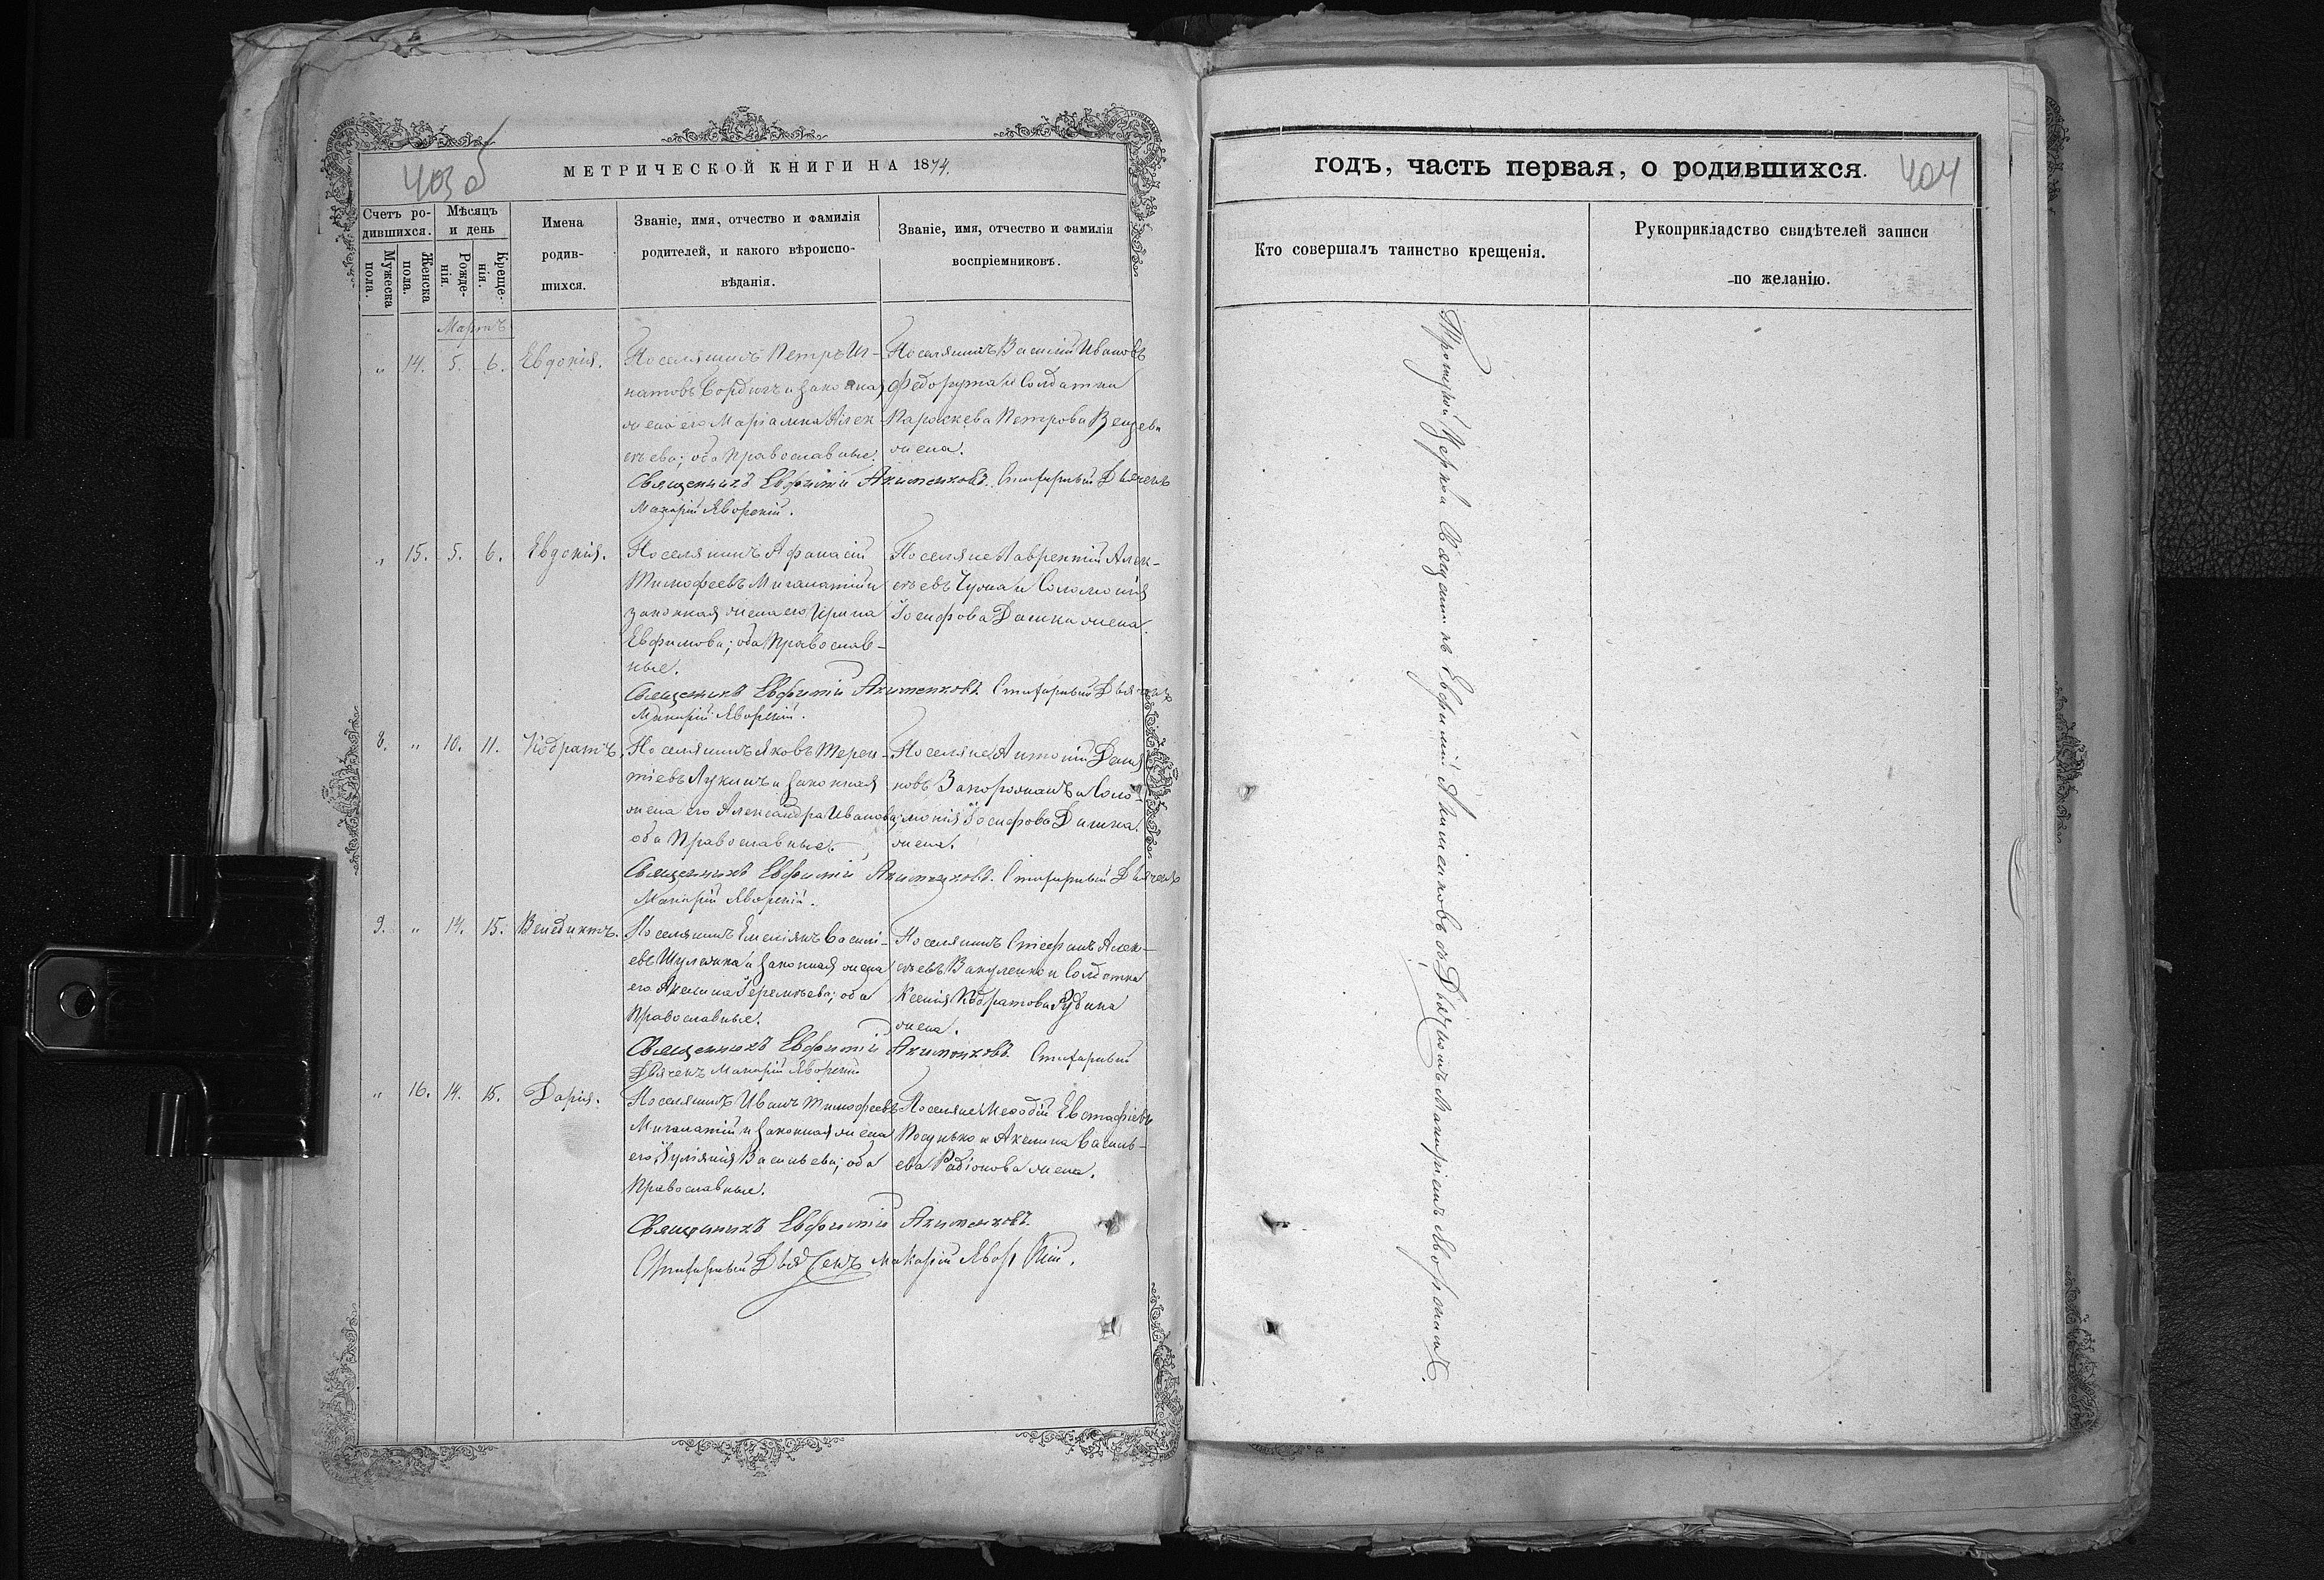 403 об
МЕТРИЧЕСКОЙ КНИГИ НА 1874.
Счетъ родившихся.
Мужеска пола.
Женска пола.
Мѣсяцъ и день
Рожденія.
Крещенія.
Имена родившихся.
Званіе, имя, отчество и фамилія
родителей, и какого вѣроиспо-
вѣданія.
Званіе, имя, отчество и фамилія
воспріемниковъ.
Мартъ
" 14. 5. 6. Евдокія.
Поселянинъ Петръ Иг-
натовъ и законная
жена его Маріамна Алек-
сѣева; оба Православные.
Поселянинъ Василій Ивановъ
Федорута и Солдатка
Параскева Петрова
жена.
Священникъ Евфимій Акименковъ. Стихарный Дьячекъ
Макарій Яворскій.
" 15. 5. 6. Евдокія.
Поселянинъ Афанасій
Тимофеевъ Мигалатій и
законная жена его Ирина
Евфимова; оба Православ-
ные.
Поселяне Лаврентій Алек-
сѣевъ Чупа и Соломонія
Іосифова Дашка жена.
Священникъ Евфимій Акименковъ. Стихарный Дьячекъ
Макарій Яворскій.
8. " 10. 11. Кодратъ.
Поселянинъ Яковъ Терен-
тіевъ Лукинъ и законная
жена его Александра Иванова;
оба Православные.
Поселяне Антоній Демья
новъ Запорожанъ и Соло-
монія Іосифова Дашка
жена.
Священникъ Евфимій Акименковъ. Стихарный Дьячекъ
Макарій Яворскій.
9. " 14. 15. Венедиктъ.
Поселянинъ Емеліянъ Василі-
евъ Шулежка и законная жена
его Акилина Іеремѣева; оба
Православные.
Поселянинъ Стефанъ Алек-
сѣевъ Вакуленко и Солдатка
Ксенія Кодратова Рудика
жена.
Священникъ Евфимій Акименковъ. Стихарный
Дьячекъ Макарій Яворскій
" 16. 14. 15. Дарія.
Поселянинъ Иванъ Тимофеевъ
Мигалатій и законная жена
его Іуліянія Васильева; оба
Православные.
Поселяне Меѳодій Евстафіевъ
и Акилина Василь-
ева Радіонова жена.
Священникъ Евфимій Акименковъ.
Стихарный Дьячекъ Макарій Яворскій.
годъ, часть первая, о родившихся.
404
Кто совершалъ таинство крещенія.
Рукоприкладство свидѣтелей записи
по желанію.
Священникъ Евфимій Акименковъ съ Дьячкомъ Макаріемъ Яворскимъ.